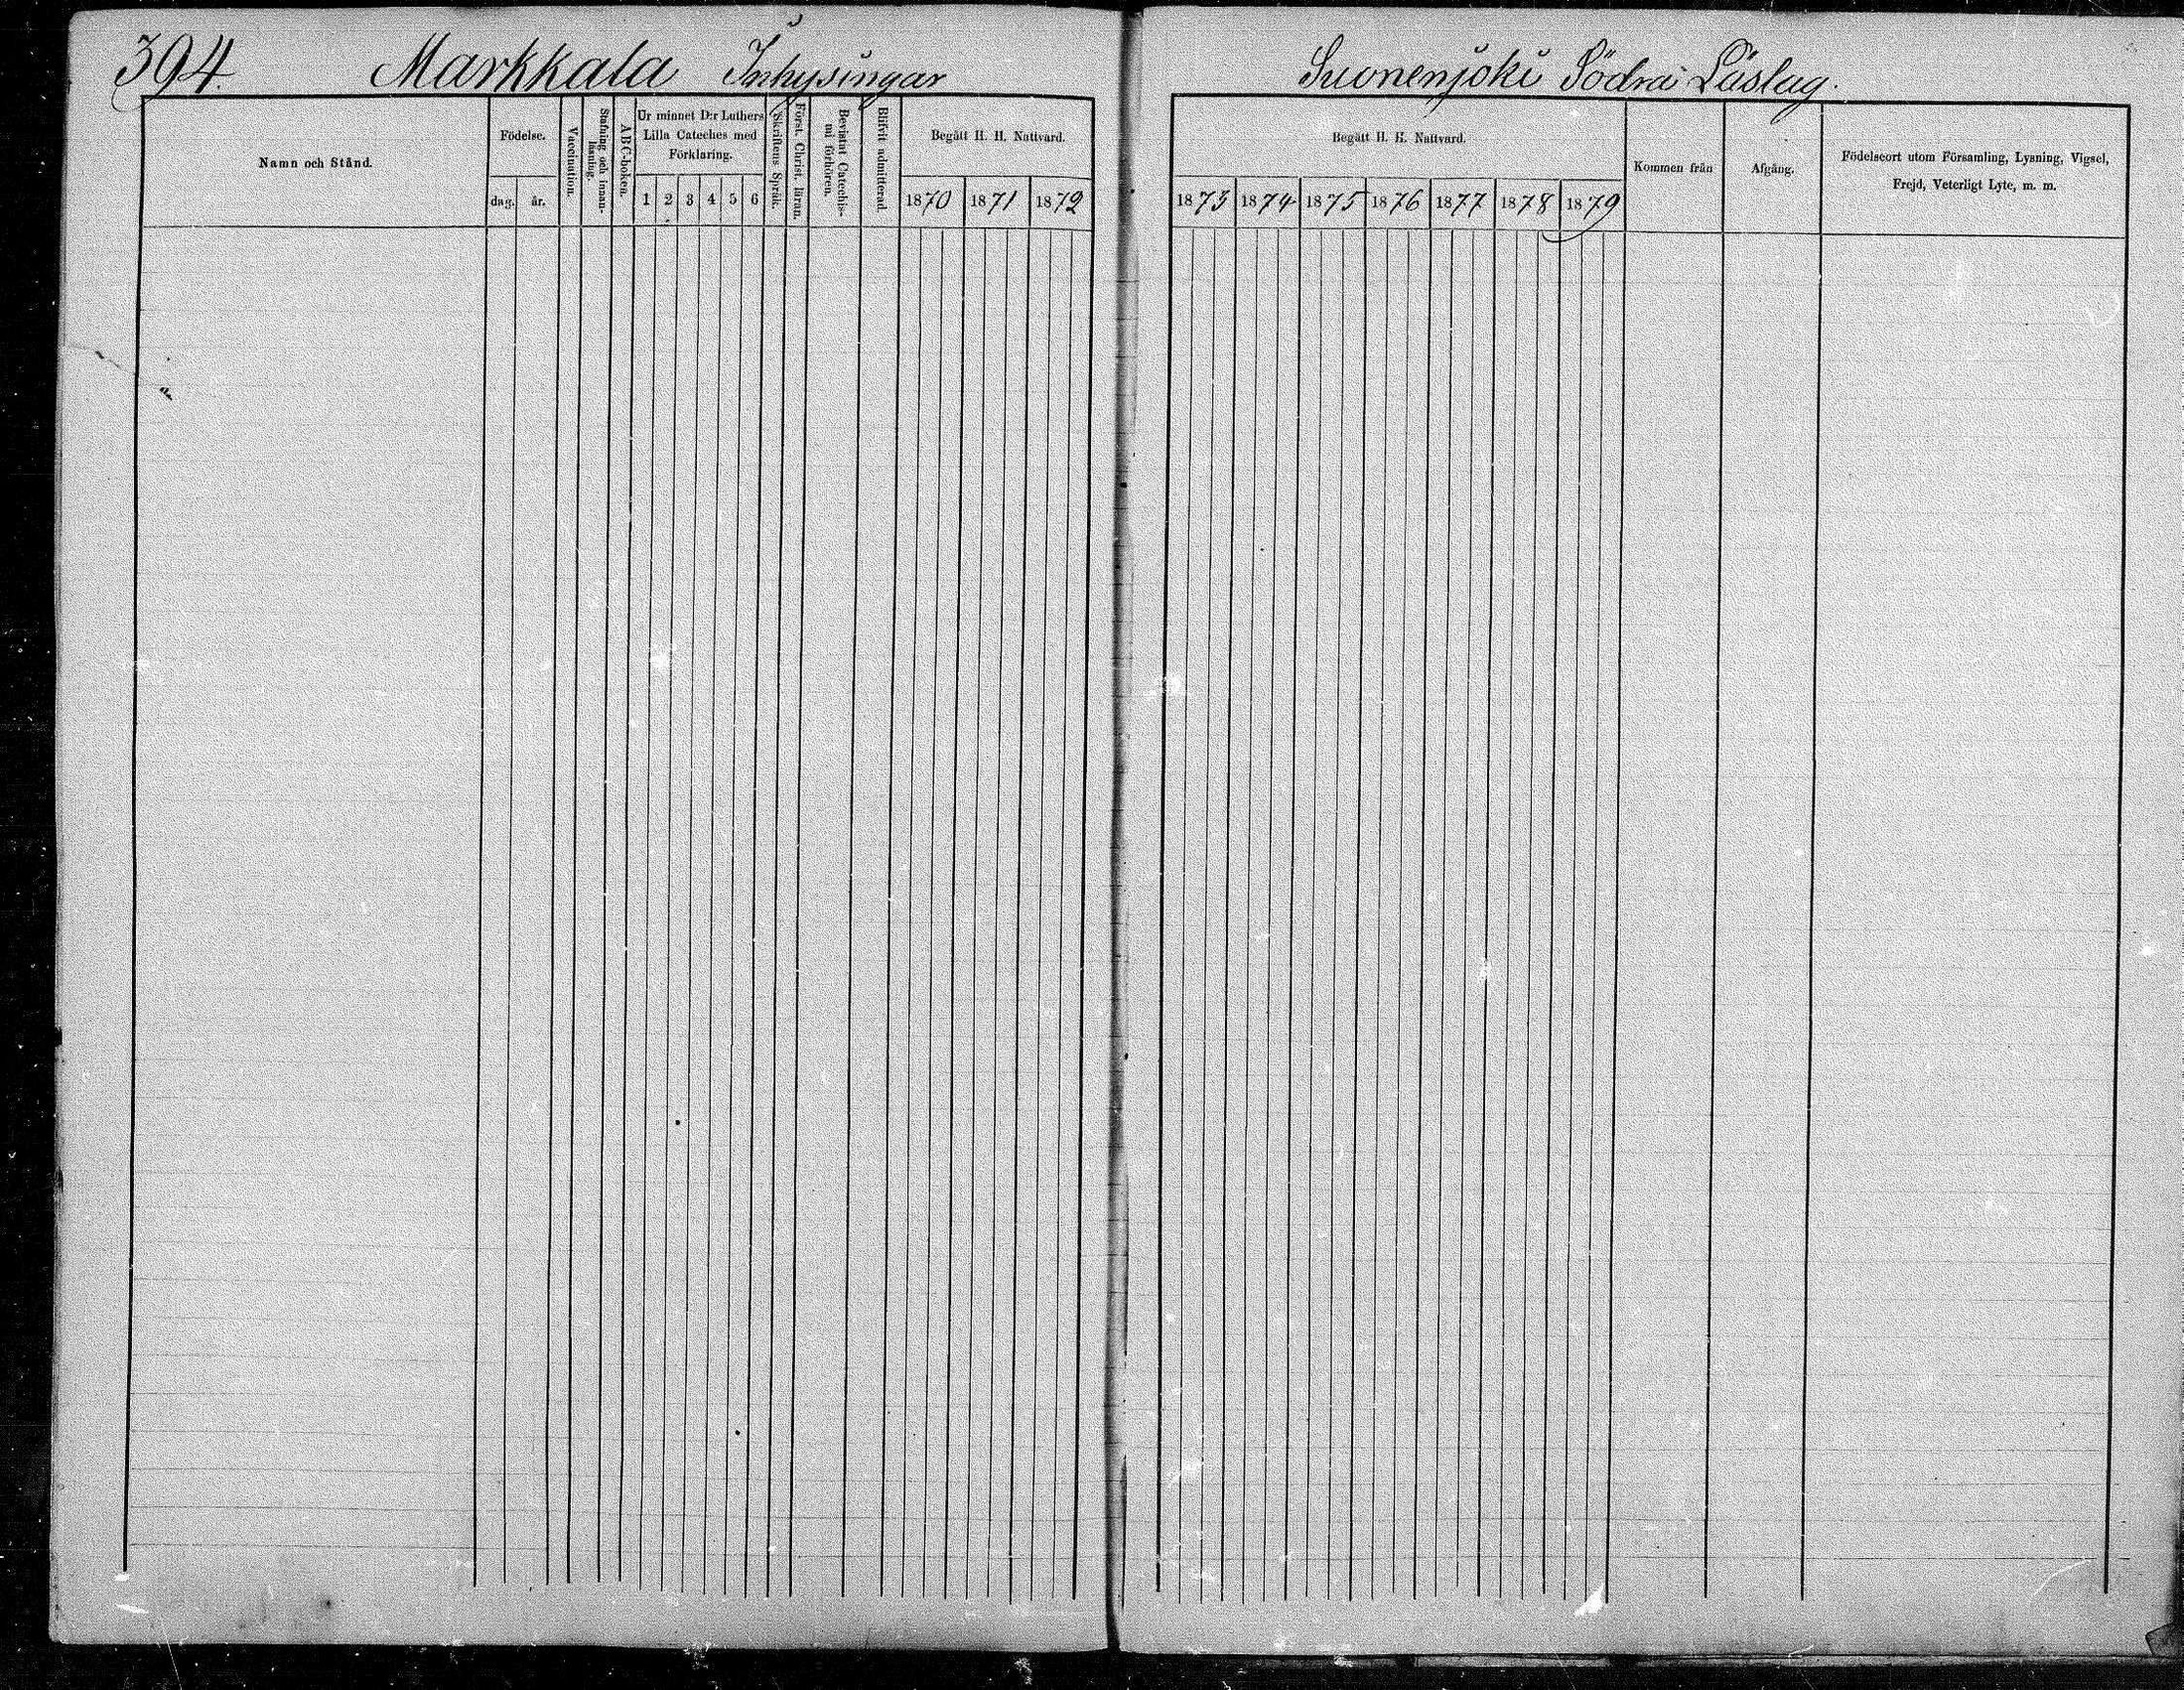 394. Markkala Inhysingar
Suonenjoki Södra Läslag.
Namn och Stånd.
Födelse.
dag. år.
Vaccination.
Stafning och innan-
läsning.
ABC-boken.
Ur minnet D:r Luthers
Lilla Cateches med
Förklaring.
1 2 3 4 5 6
Skriftens Språk.
Först. Christ. läran.
Bevistat Catechis-
mi förhören.
Blifvit admitterad.
Begått H. H. Nattvard.
1870 1871 1872
Begått H. H. Nattvard.
1873 1874 1875 1876 1877 1878 1879
Kommen från
Afgång.
Födelseort utom Församling, Lysning, Vigsel,
Frejd, Veterligt Lyte, m. m.